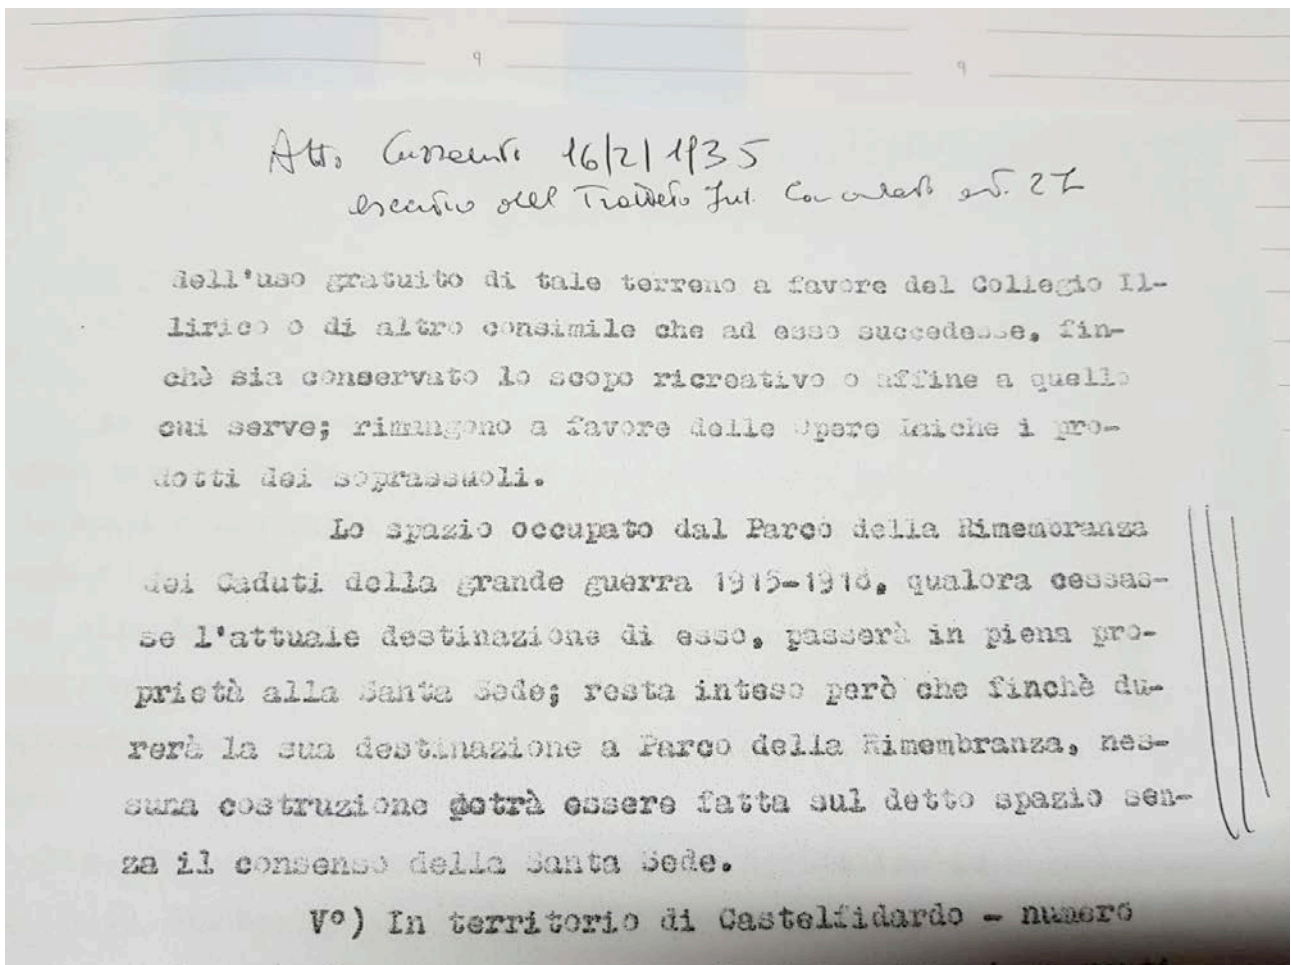 9 9
Atto 16/2/1935
del Trattato art. 27
dell'uso gratuito di tale terreno a favore del Collegio Il-
lirico o di altro consimile che ad esso succedesse, fin-
chè sia conservato lo scopo ricreativo o affine a quello
cui serve; rimangono a favore delle Opere Laiche i pro-
dotti dei soprassuoli.
Lo spazio occupato dal Parco della Rimembranza
dei Caduti della grande guerra 1915-1918, qualora cessas-
se l'attuale destinazione di esso, passerà in piena pro-
prietà alla Santa Sede; resta inteso però che finchè du-
rerà la sua destinazione a Parco della Rimembranza, nes-
suna costruzione potrà essere fatta sul detto spazio sen-
za il consenso della Santa Sede.
V°) In territorio di Castelfidardo - numero